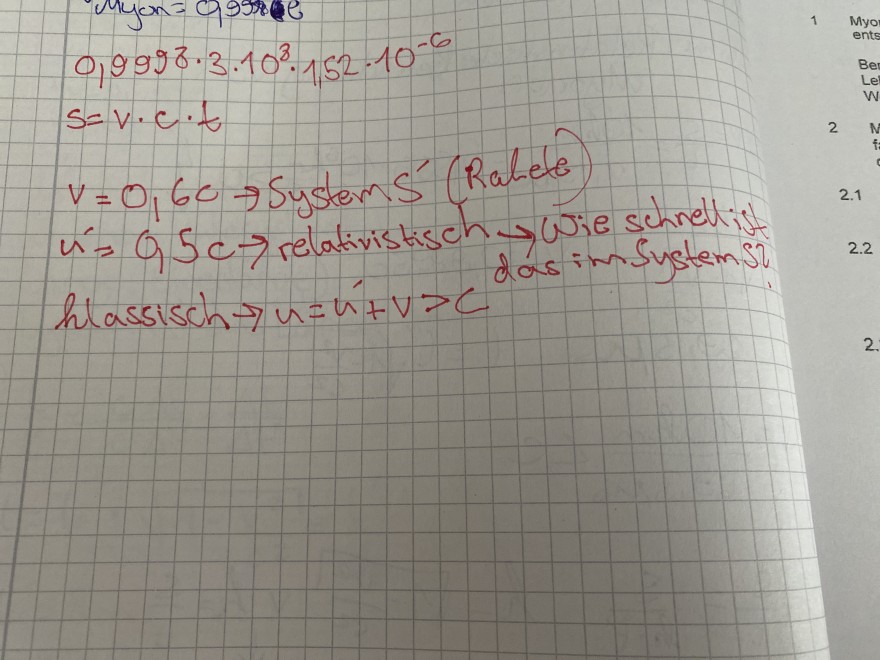 Myon = 0,999
0,9998 · 3 · 10⁸ · 1,52 · 10⁻⁶
s = v · c · t
v = 0,6c → System S' (Rakete)
u' = 0,5c → relativistisch → Wie schnell ist
das im System S?
klassisch → u = u' + v > c
1 Myo
ents
Ber
Le
W
2 M
fa
2.1
2.2
2.